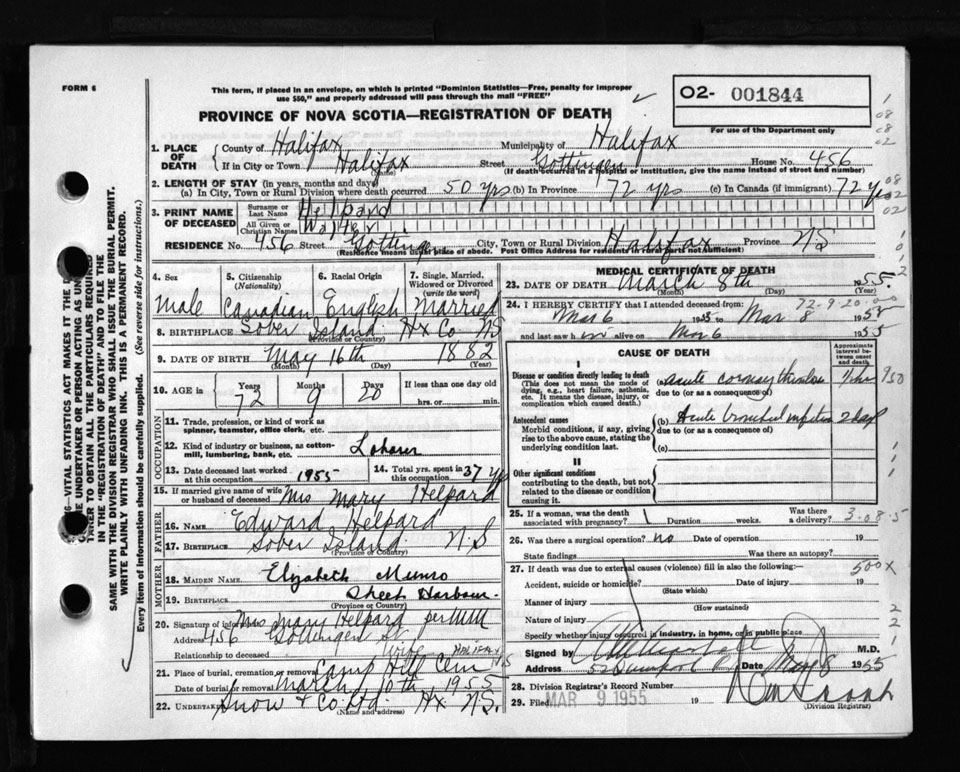 FORM 6
This form, if placed in an envelope, on which is printed "Dominion Statistics—Free, penalty for improper
use $50," and properly addressed will pass through the mail "FREE"
O2- 001844
PROVINCE OF NOVA SCOTIA—REGISTRATION OF DEATH
For use of the Department only
1. PLACE OF DEATH
County of Halifax Municipality of Halifax
If in City or Town Halifax Street Gottingen House No. 456
(Name) (If death occurred in a hospital or institution, give the name instead of street and number)
2. LENGTH OF STAY (in years, months and days)
(a) In City, Town or Rural Division where death occurred 50 yrs (b) In Province 72 yrs (c) In Canada (if immigrant) 72 yrs
3. PRINT NAME OF DECEASED
Surname or Last Name Helpard
All Given or Christian Names Walter
RESIDENCE No. 456 Street Gottingen City, Town or Rural Division Halifax Province NS
Residence means usual place of abode. Post Office Address for residents in rural parts not sufficient)
4. Sex 5. Citizenship (Nationality) 6. Racial Origin 7. Single, Married, Widowed or Divorced (write the word)
Male Canadian English Married
8. BIRTHPLACE Sober Island Hx Co NS
(Province or Country)
9. DATE OF BIRTH May 16th 1882
(Month) (Day) (Year)
10. AGE in Years Months Days If less than one day old
72 9 20 hrs. or min.
OCCUPATION
11. Trade, profession, or kind of work as spinner, teamster, office clerk, etc.
12. Kind of industry or business, as cotton-mill, lumbering, bank, etc. Laborer
13. Date deceased last worked at this occupation 1955 14. Total yrs. spent in this occupation 37 yrs
15. If married give name of wife or husband of deceased Mrs Mary Helpard
FATHER
16. NAME Edward Helpard
17. BIRTHPLACE Sober Island N.S
(Province or Country)
MOTHER
18. MAIDEN NAME Elizabeth Munro
19. BIRTHPLACE Sheet Harbour
(Province or Country)
20. Signature of informant Mrs Mary Helpard per
Address 456 Gottingen St
Relationship to deceased Wife HALIFAX NS
21. Place of burial, cremation or removal Camp Hill Cem
Date of burial or removal March 10th 1955
22. Undertaker Snow & Co Ltd. Hx. NS.
(Name and address)
MEDICAL CERTIFICATE OF DEATH
23. DATE OF DEATH March 8th 1955.
(Month) (Day) (Year)
72-9-20-00
24. I HEREBY CERTIFY that I attended deceased from:
Mar 6 1955 to Mar 8 1955
and last saw him alive on Mar 6 1955
CAUSE OF DEATH
Approximate interval between onset and death
I
Disease or condition directly leading to death
(This does not mean the mode of dying, e.g., heart failure, asthenia, etc. It means the disease, injury, or complication which caused death.)
(a) acute coronary 1 hr
due to (or as a consequence of)
Antecedent causes
Morbid conditions, if any, giving rise to the above cause, stating the underlying condition last.
(b) Acute bronchial infection 2 days
due to (or as a consequence of)
(c)
II
Other significant conditions
contributing to the death, but not related to the disease or condition causing it.
25. If a woman, was the death associated with pregnancy? Duration weeks. Was there a delivery?
3-08-5
26. Was there a surgical operation? no Date of operation 19
State findings Was there an autopsy?
27. If death was due to external causes (violence) fill in also the following:—
500X
Accident, suicide or homicide? Date of injury 19
(State which)
Manner of injury
(How sustained)
Nature of injury
Specify whether injury occurred in industry, in home, or in public place
Signed by M.D.
Address Date Mar 8 1955
28. Division Registrar's Record Number
29. Filed MAR 9 1955 19
(Division Registrar)
SAME WITH THE DIVISION REGISTRAR WHO SHALL ISSUE THE BURIAL PERMIT.
WRITE PLAINLY WITH UNFADING INK. THIS IS A PERMANENT RECORD.
Every item of information should be carefully supplied. (See reverse side for instructions.)